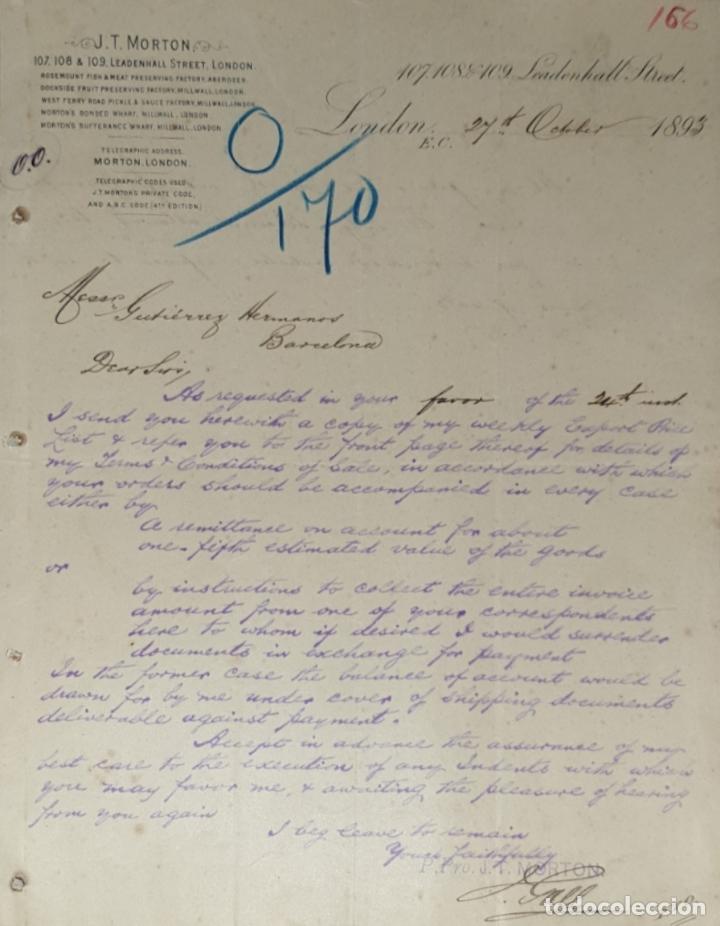 166
J. T. MORTON
107, 108 & 109, LEADENHALL STREET, LONDON.
ROSEMOUNT FISH & MEAT PRESERVING FACTORY, ABERDEEN.
DOCKSIDE FRUIT PRESERVING FACTORY, MILLWALL, LONDON.
WEST FERRY ROAD PICKLE & SAUCE FACTORY, MILLWALL, LONDON
MORTON'S BONDED WHARF, MILLWALL, LONDON
MORTON'S SUFFERANCE WHARF, MILLWALL, LONDON
TELEGRAPHIC ADDRESS,
MORTON, LONDON.
TELEGRAPHIC CODES USED,
J. T. MORTON'S PRIVATE CODE,
AND A.B.C. CODE (4TH EDITION)
107, 108 & 109, Leadenhall Street.
London, E.C. 27th October 1893
O.O.
0/170
Messrs Gutiérrez Hermanos
Barcelona
Dear Sirs,
As requested in your favor of the 24th inst.
I send you herewith a copy of my weekly Export Price
List & refer you to the front page thereof for details of
my Terms & Conditions of Sale, in accordance with which
your orders should be accompanied in every case
either by
A remittance on account for about
one-fifth estimated value of the goods
or
by instructions to collect the entire invoice
amount from one of your correspondents
here to whom if desired I would surrender
documents in exchange for payment
In the former case the balance of account would be
drawn for by me under cover of shipping documents
deliverable against payment.
Accept in advance the assurance of my
best care to the execution of any Indents with which
you may favor me, & awaiting the pleasure of hearing
from you again
I beg leave to remain
Yours faithfully
P. Pro. J. T. MORTON
todocoleccion.net